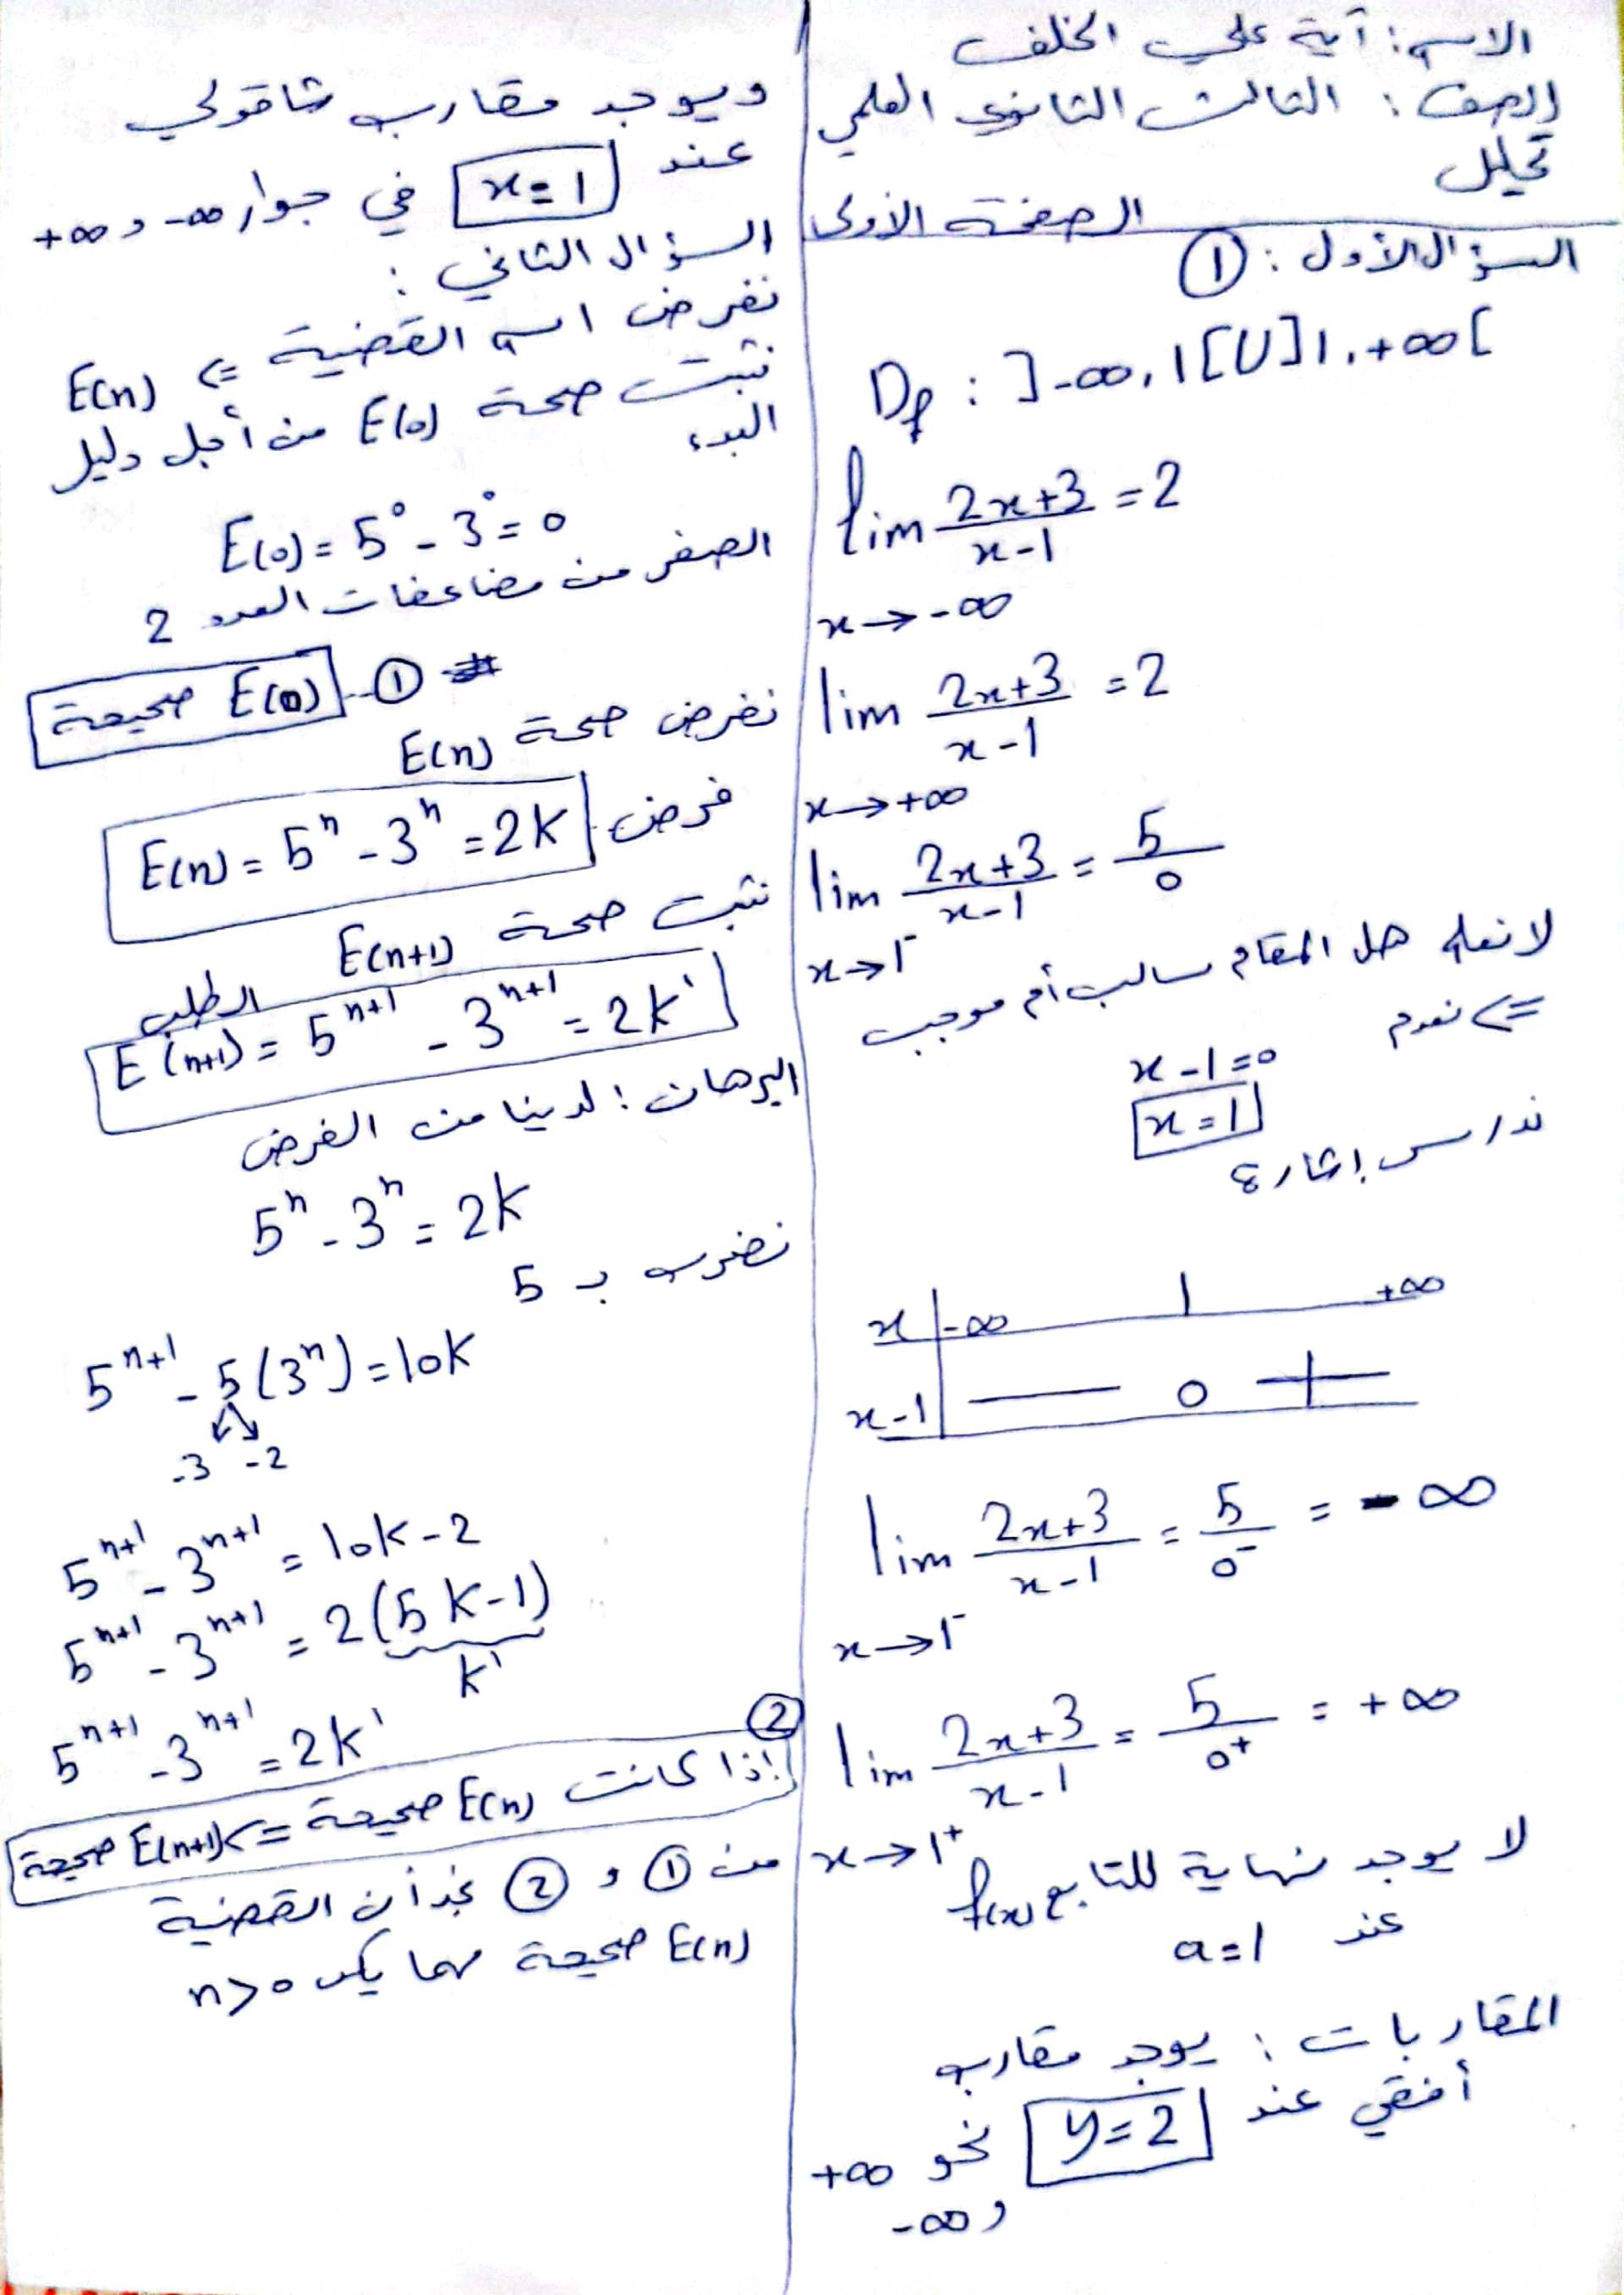 الاسم: آية علي الخلف
الصف: الثالث الثانوي العلمي
تحليل
الصفحة الأولى
السؤال الأول: ①
Df : ]-∞, 1[U]1, +∞[
lim 2x+3/x-1 = 2
x→-∞
lim 2x+3/x-1 = 2
x→+∞
lim 2x+3/x-1 = 5/0
x→1⁻
لا نعلم هل المقام سالب أم موجب
=> نعدم
x-1=0
x=1
ندرس إشارة
x -∞ 1 +∞
x-1 — 0 +
lim 2x+3/x-1 = 5/0⁻ = -∞
x→1⁻
lim 2x+3/x-1 = 5/0⁺ = +∞
x→1⁺
لا يوجد نهاية للتابع f(x)
عند a=1
المقاربات: يوجد مقارب
أفقي عند y=2 نحو +∞
و -∞
ويوجد مقارب شاقولي
عند x=1 في جوار -∞ و +∞
السؤال الثاني:
نفرض اسم القضية => E(n)
نثبت صحة E(0) من أجل دليل
البدء
E(0) = 5⁰ - 3⁰ = 0
الصفر من مضاعفات العدد 2
① E(0) صحيحة
نفرض صحة E(n)
فرض E(n) = 5ⁿ - 3ⁿ = 2k
نثبت صحة E(n+1)
الطلب
E(n+1) = 5ⁿ⁺¹ - 3ⁿ⁺¹ = 2k'
البرهان: لدينا من الفرض
5ⁿ - 3ⁿ = 2k
نضرب بـ 5
5ⁿ⁺¹ - 5(3ⁿ) = 10k
-3 -2
5ⁿ⁺¹ - 3ⁿ⁺¹ = 10k - 2
5ⁿ⁺¹ - 3ⁿ⁺¹ = 2(5k-1)
k'
5ⁿ⁺¹ - 3ⁿ⁺¹ = 2k'
②
إذا كانت E(n) صحيحة => E(n+1) صحيحة
من ① و ② نجد أن القضية
E(n) صحيحة مهما يكن n>0